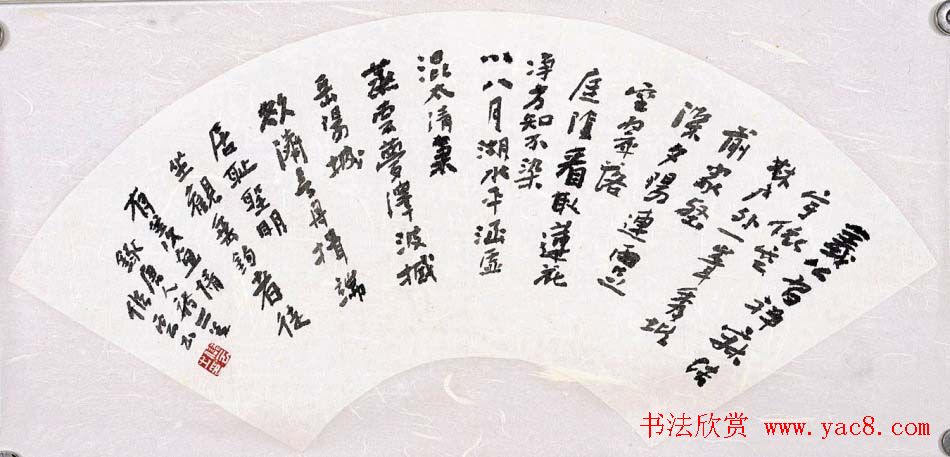 義公習禅寂結
宇依空林
户外一峯秀階
前眾壑
深夕陽連雨足
空翠落
庭陰看取蓮花
净方知不染
心八月湖水平涵虚
混太清氣
蒸雲夢澤波撼
岳陽城
欲濟無舟楫端
居耻聖明
坐觀垂釣者徒
有羨魚情
錄唐人詩二首
书法欣赏 www.yac8.com